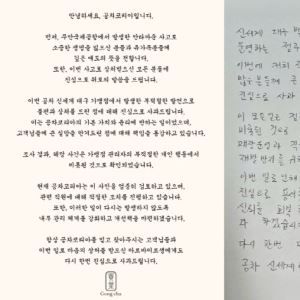 안녕하세요, 공차코리아입니다.
먼저, 무안국제공항에서 발생한 안타까운 사고로
소중한 생명을 잃으신 분들과 유가족분들께
깊은 애도의 뜻을 전합니다.
또한, 이번 사고로 상처받으신 모든 분들께
진심으로 위로의 말씀을 드립니다.
이번 공차 신세계 대구 가맹점에서 발생한 부적절한 발언으로
불편과 상처를 드린 점에 대해 진심으로 사과드립니다.
이는 공차코리아의 기본 가치와 윤리에 반하는 일이었으며,
고객님들께 큰 실망을 안겨드린 점에 대해 책임을 통감하고 있습니다.
조사 결과, 해당 사건은 가맹점 관리자의 부적절한 개인 행동에서
비롯된 것으로 확인되었습니다.
현재 공차코리아는 이 사안을 엄중히 검토하고 있으며,
관련 직원에 대해 적절한 조치를 진행하고 있습니다.
또한, 이러한 일이 다시는 발생하지 않도록
내부 관리 체계를 강화하고 개선책을 마련하겠습니다.
항상 공차코리아를 믿고 찾아주시는 고객님들과
이번 일로 마음의 상처를 입으신 아르바이트생에게도
다시 한번 진심으로 사과드립니다.
Gong cha
신세계 대구
운영하는 점주
이번에 저희
진심으로 사과
이 모든 일은
비롯된
이번 일로
진심으로
신뢰를 회복
다시 한번
공차 신세계